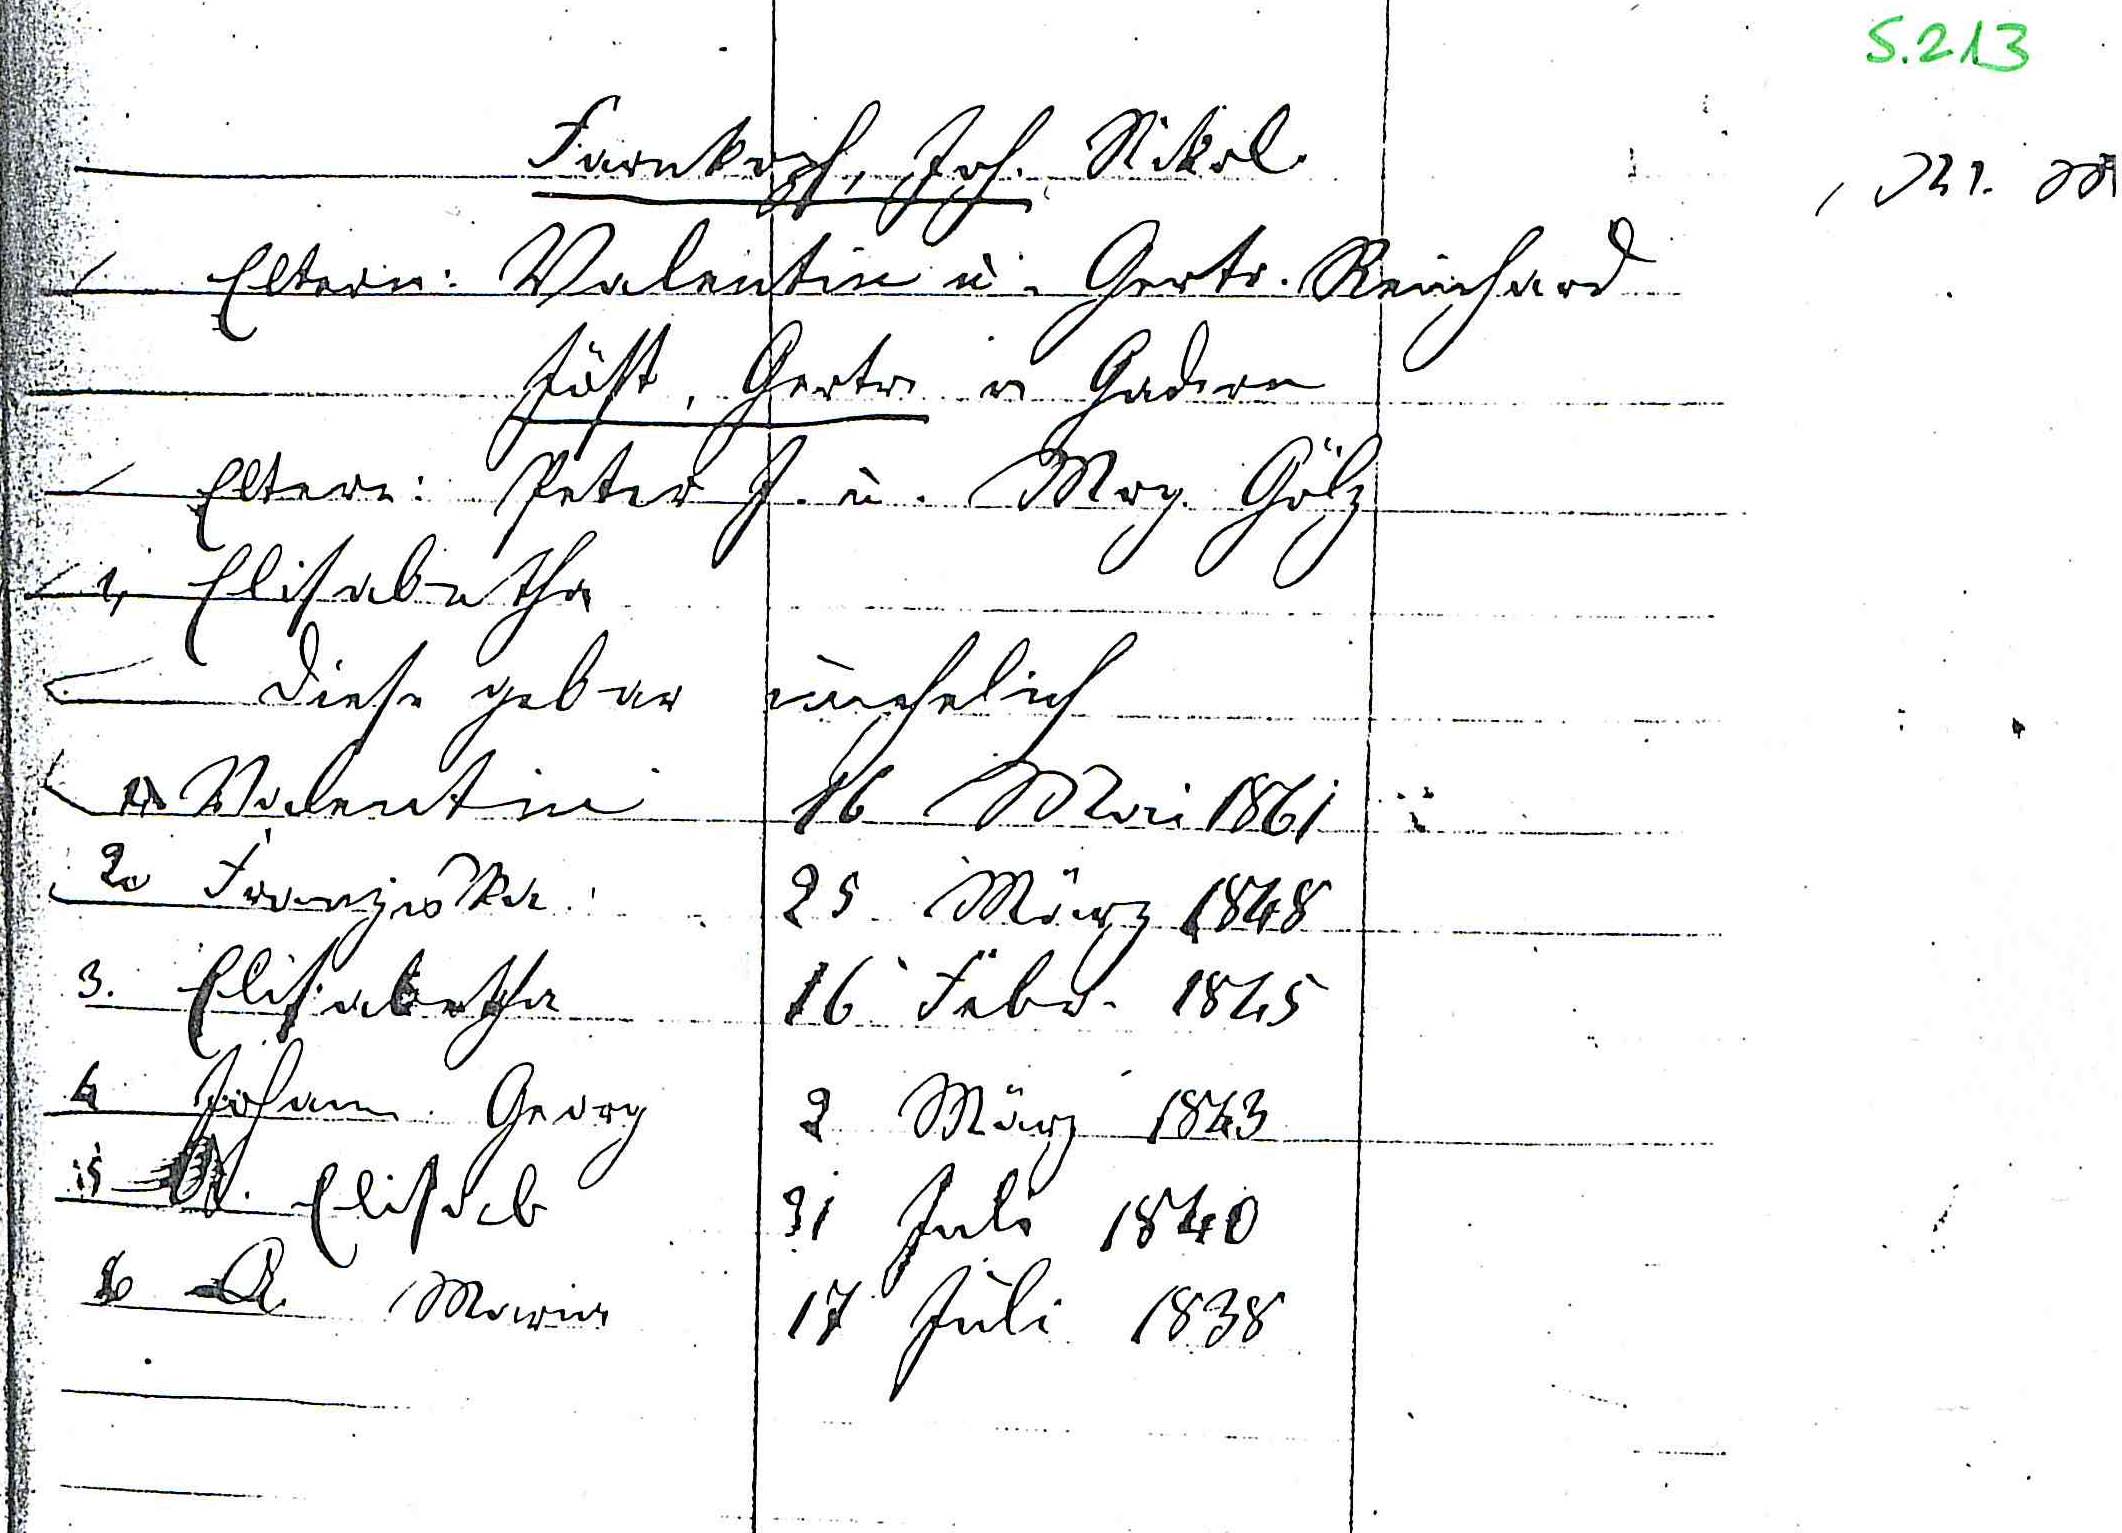 S. 213
Farnkopf, Joh. Nikol.
Eltern: Valentin u. Gertr. Reinhard
Jöst, Gertr. v Gadern
Eltern: Peter J. u. Mrg. Gölz
1, Elisabetha
diese gebar unehelich
Valentin 16 Mai 1861
2. Franziska 25 März 1848
3. Elisabetha 16 Febr. 1845
4 Johann Georg 2 März 1843
5 Elisab 31 Juli 1840
6 A. Maria 17 Juli 1838